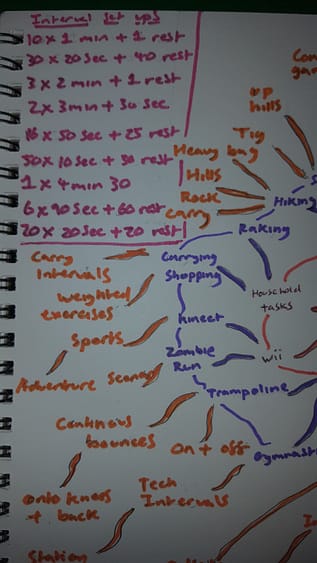 Interval set ups
10 x 1 min + 1 rest
30 x 20 sec + 40 rest
3 x 2 min + 1 rest
2 x 3 min + 30 sec
16 x 50 sec + 25 rest
50 x 10 sec + 30 rest
1 x 4 min 30
6 x 90 sec + 60 rest
20 x 20 sec + 20 rest
up
hills
Tig
Heavy bag
Hills
Rock
carry
Hiking
Raking
Carry
Intervals
Carrying
Shopping
Household
tasks
weighted
exercises
Sports
kinect
Zombie
Run
wii
Adventure
Trampoline
Continous
bounces
On + off
Gymnast
onto knees
+ back
Tech
Intervals
Station